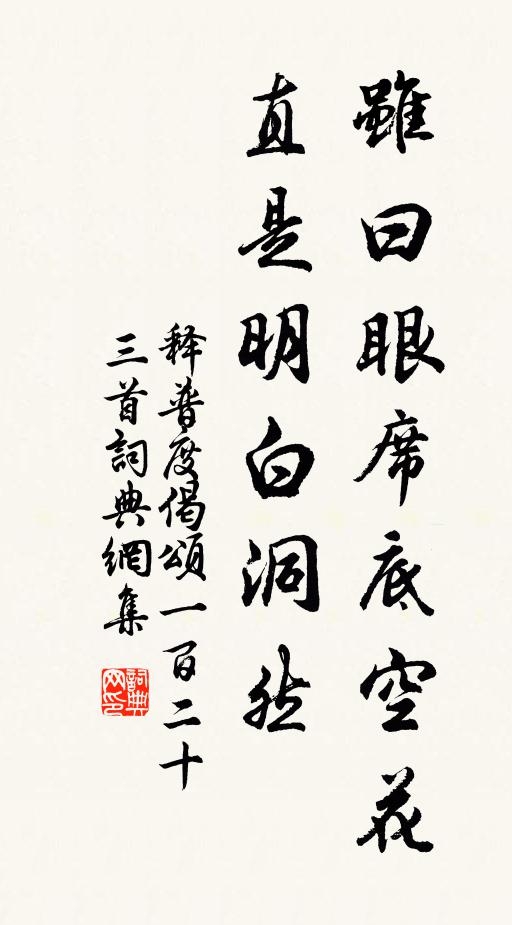 雖曰眼席底空花
直是明白洞然
释普度偈頌一百二十
三首詞典網集
詞典网印